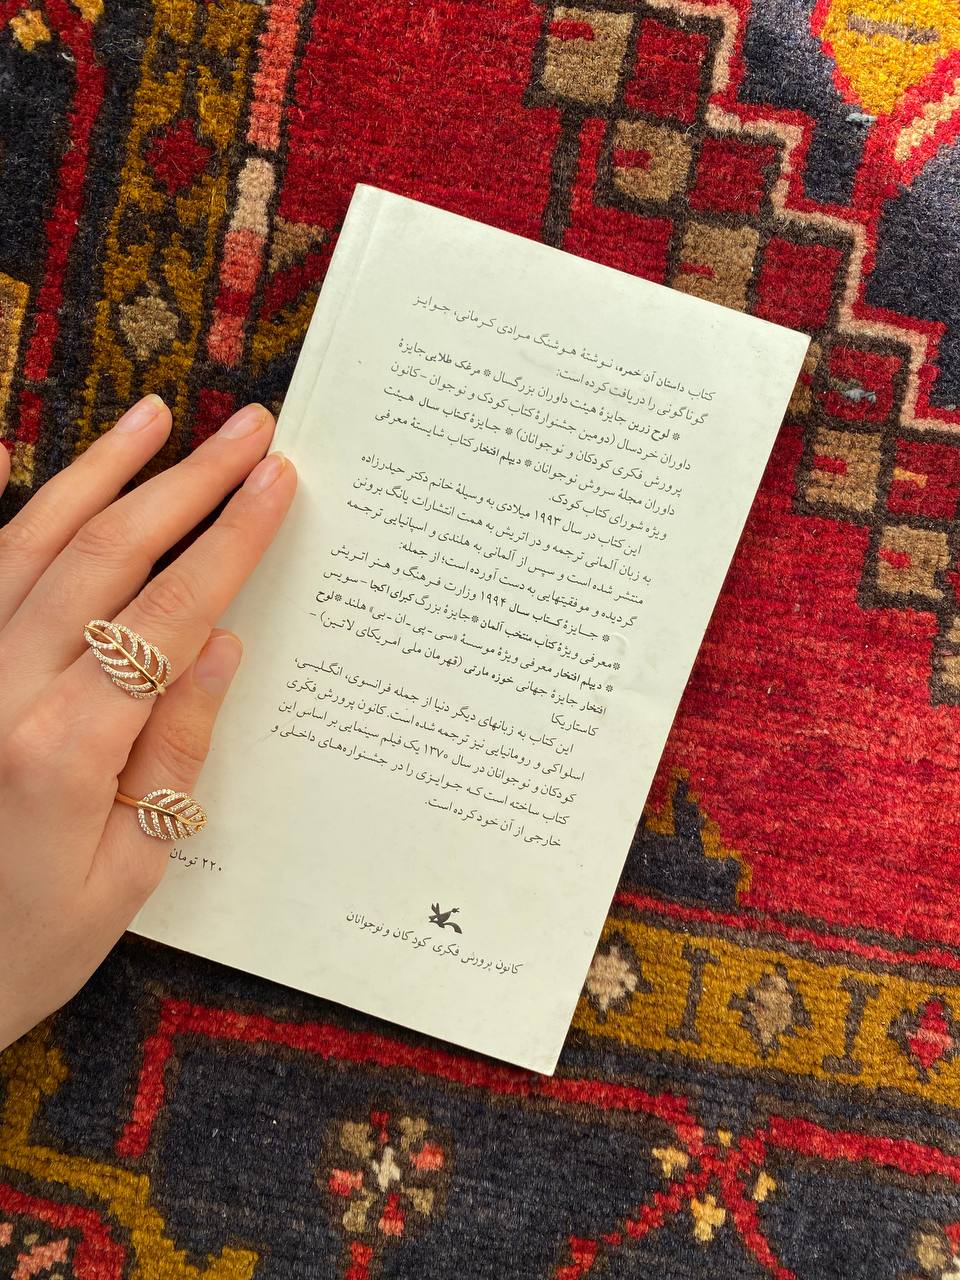 کتاب داستان آن خمره، نوشتهٔ هوشنگ مرادی کرمانی، جوایز
گوناگونی را دریافت کرده است:
* لوح زرین جایزهٔ هیئت داوران بزرگسال * مرغک طلایی جایزهٔ
داوران خردسال (دومین جشنوارهٔ کتاب کودک و نوجوان - کانون
پرورش فکری کودکان و نوجوانان) * جایزهٔ کتاب سال هیئت
داوران مجلهٔ سروش نوجوانان * دیپلم افتخار کتاب شایستهٔ معرفی
ویژه شورای کتاب کودک.
این کتاب در سال ۱۹۹۳ میلادی به وسیلهٔ خانم دکتر حیدرزاده
به زبان آلمانی ترجمه و در اتریش به همت انتشارات یانگ برونن
منتشر شده است و سپس از آلمانی به هلندی و اسپانیایی ترجمه
گردیده و موفقیتهایی به دست آورده است؛ از جمله:
* جایزهٔ کتاب سال ۱۹۹۴ وزارت فرهنگ و هنر اتریش
* معرفی ویژهٔ کتاب منتخب آلمان * جایزهٔ بزرگ کبرای آکجا - سویس
* دیپلم افتخار معرفی ویژهٔ موسسهٔ «سی - پی - ان - بی» هلند * لوح
افتخار جایزهٔ جهانی خوزه مارتی (قهرمان ملی امریکای لاتین) -
کاستاریکا
این کتاب به زبانهای دیگر دنیا از جمله فرانسوی، انگلیسی،
اسلواکی و رومانیایی نیز ترجمه شده است. کانون پرورش فکری
کودکان و نوجوانان در سال ۱۳۷۰ یک فیلم سینمایی بر اساس این
کتاب ساخته است که جوایزی را در جشنواره‌های داخلی و
خارجی از آن خود کرده است.
۲۲۰ تومان
کانون پرورش فکری کودکان و نوجوانان